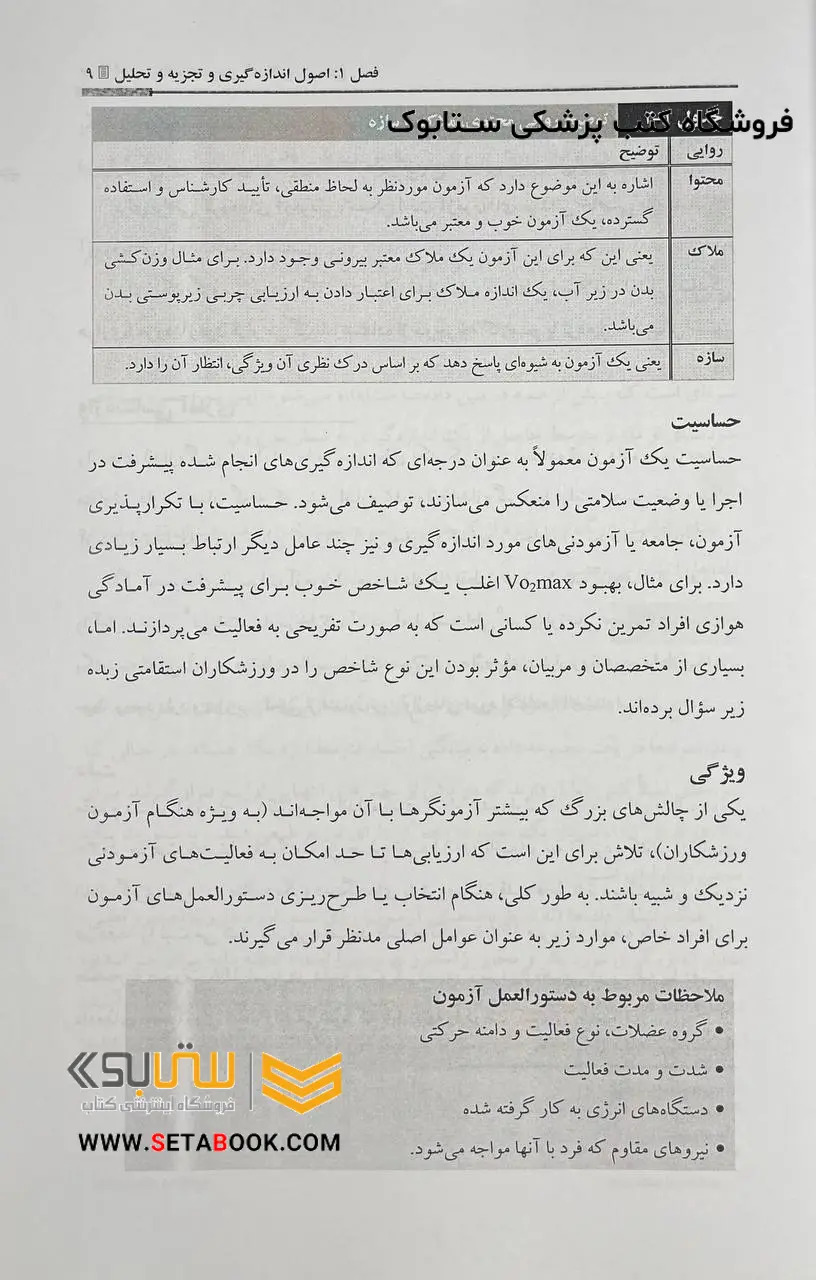 فصل ۱: اصول اندازه‌گیری و تجزیه و تحلیل ۹
فروشگاه کتب پزشکی ستابوک
جدول
روایی توضیح
محتوا اشاره به این موضوع دارد که آزمون موردنظر به لحاظ منطقی، تأیید کارشناس و استفاده
گسترده، یک آزمون خوب و معتبر می‌باشد.
ملاک یعنی این که برای این آزمون یک ملاک معتبر بیرونی وجود دارد. برای مثال وزن‌کشی
بدن در زیر آب، یک اندازه ملاک برای اعتبار دادن به ارزیابی چربی زیرپوستی بدن
می‌باشد.
سازه یعنی یک آزمون به شیوه‌ای پاسخ دهد که بر اساس درک نظری آن ویژگی، انتظار آن را دارد.
حساسیت
حساسیت یک آزمون معمولاً به عنوان درجه‌ای که اندازه‌گیری‌های انجام شده پیشرفت در
اجرا یا وضعیت سلامتی را منعکس می‌سازند، توصیف می‌شود. حساسیت، با تکرارپذیری
آزمون، جامعه یا آزمودنی‌های مورد اندازه‌گیری و نیز چند عامل دیگر ارتباط بسیار زیادی
دارد. برای مثال، بهبود Vo₂max اغلب یک شاخص خوب برای پیشرفت در آمادگی
هوازی افراد تمرین نکرده یا کسانی است که به صورت تفریحی به فعالیت می‌پردازند. اما،
بسیاری از متخصصان و مربیان، مؤثر بودن این نوع شاخص را در ورزشکاران استقامتی زبده
زیر سؤال برده‌اند.
ویژگی
یکی از چالش‌های بزرگ که بیشتر آزمونگرها با آن مواجه‌اند (به ویژه هنگام آزمون
ورزشکاران)، تلاش برای این است که ارزیابی‌ها تا حد امکان به فعالیت‌های آزمودنی
نزدیک و شبیه باشند. به طور کلی، هنگام انتخاب یا طرح‌ریزی دستورالعمل‌های آزمون
برای افراد خاص، موارد زیر به عنوان عوامل اصلی مدنظر قرار می‌گیرند.
ملاحظات مربوط به دستورالعمل آزمون
• گروه عضلات، نوع فعالیت و دامنه حرکتی
• شدت و مدت فعالیت
• دستگاه‌های انرژی به کار گرفته شده
• نیروهای مقاوم که فرد با آنها مواجه می‌شود.
ستابوک
فروشگاه اینترنتی کتاب
WWW.SETABOOK.COM